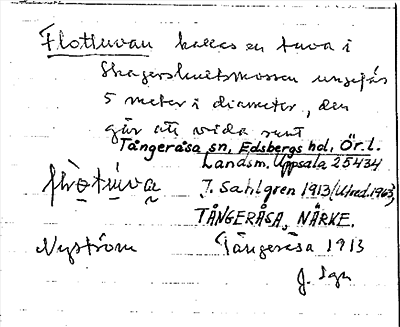 Flottuvan kallas en tuva i
Skagershultsmossen ungefär
5 meter i diameter, den
går att vida runt
Tångeråsa sn, Edsbergs hd, Ör. l.
Landsm. Uppsala 25434
J. Sahlgren 1913 (Utord. 1963)
TÅNGERÅSA, NÄRKE.
Nyström Tångeråsa 1913
J. Sgn